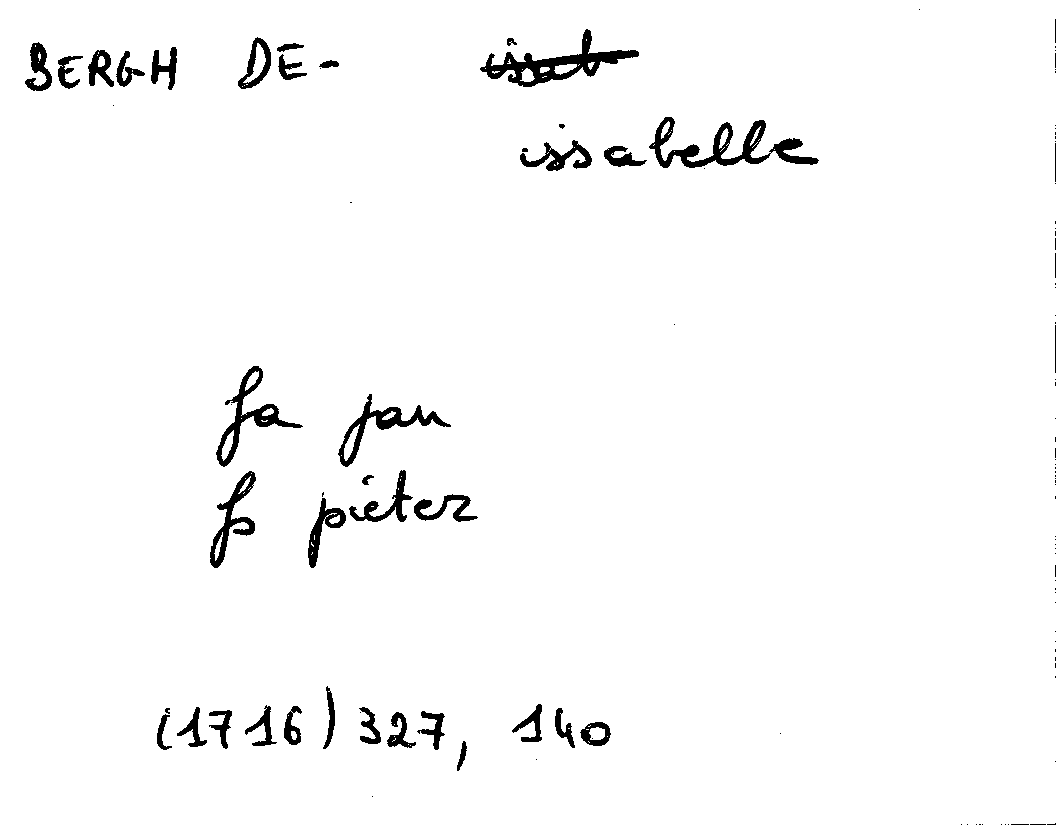 BERGH DE-
issabelle
fa jan
fs pieter
(1716) 327, 140